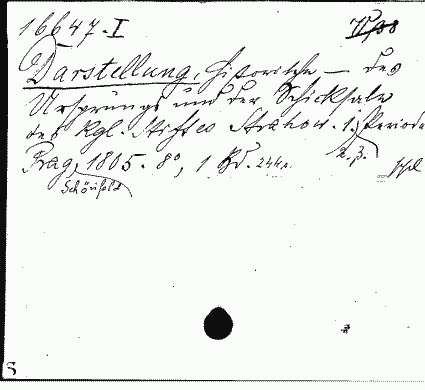 16647.I
Darstellung, historische — des
Ursprungs und der Schicksale
des kgl. Stiftes Strahow. 1. Periode
2. B.
Prag, 1805. 8°, 1 Bd. 244 s.
Schönfeld
S